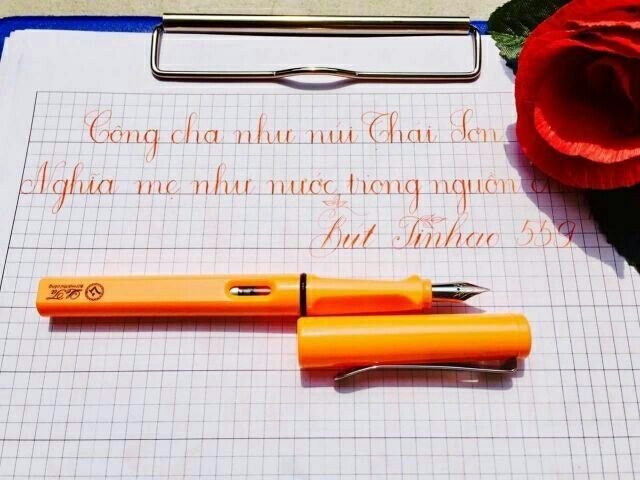 Công cha như núi Thái Sơn
Nghĩa mẹ như nước trong nguồn
Bút Tinhao 559